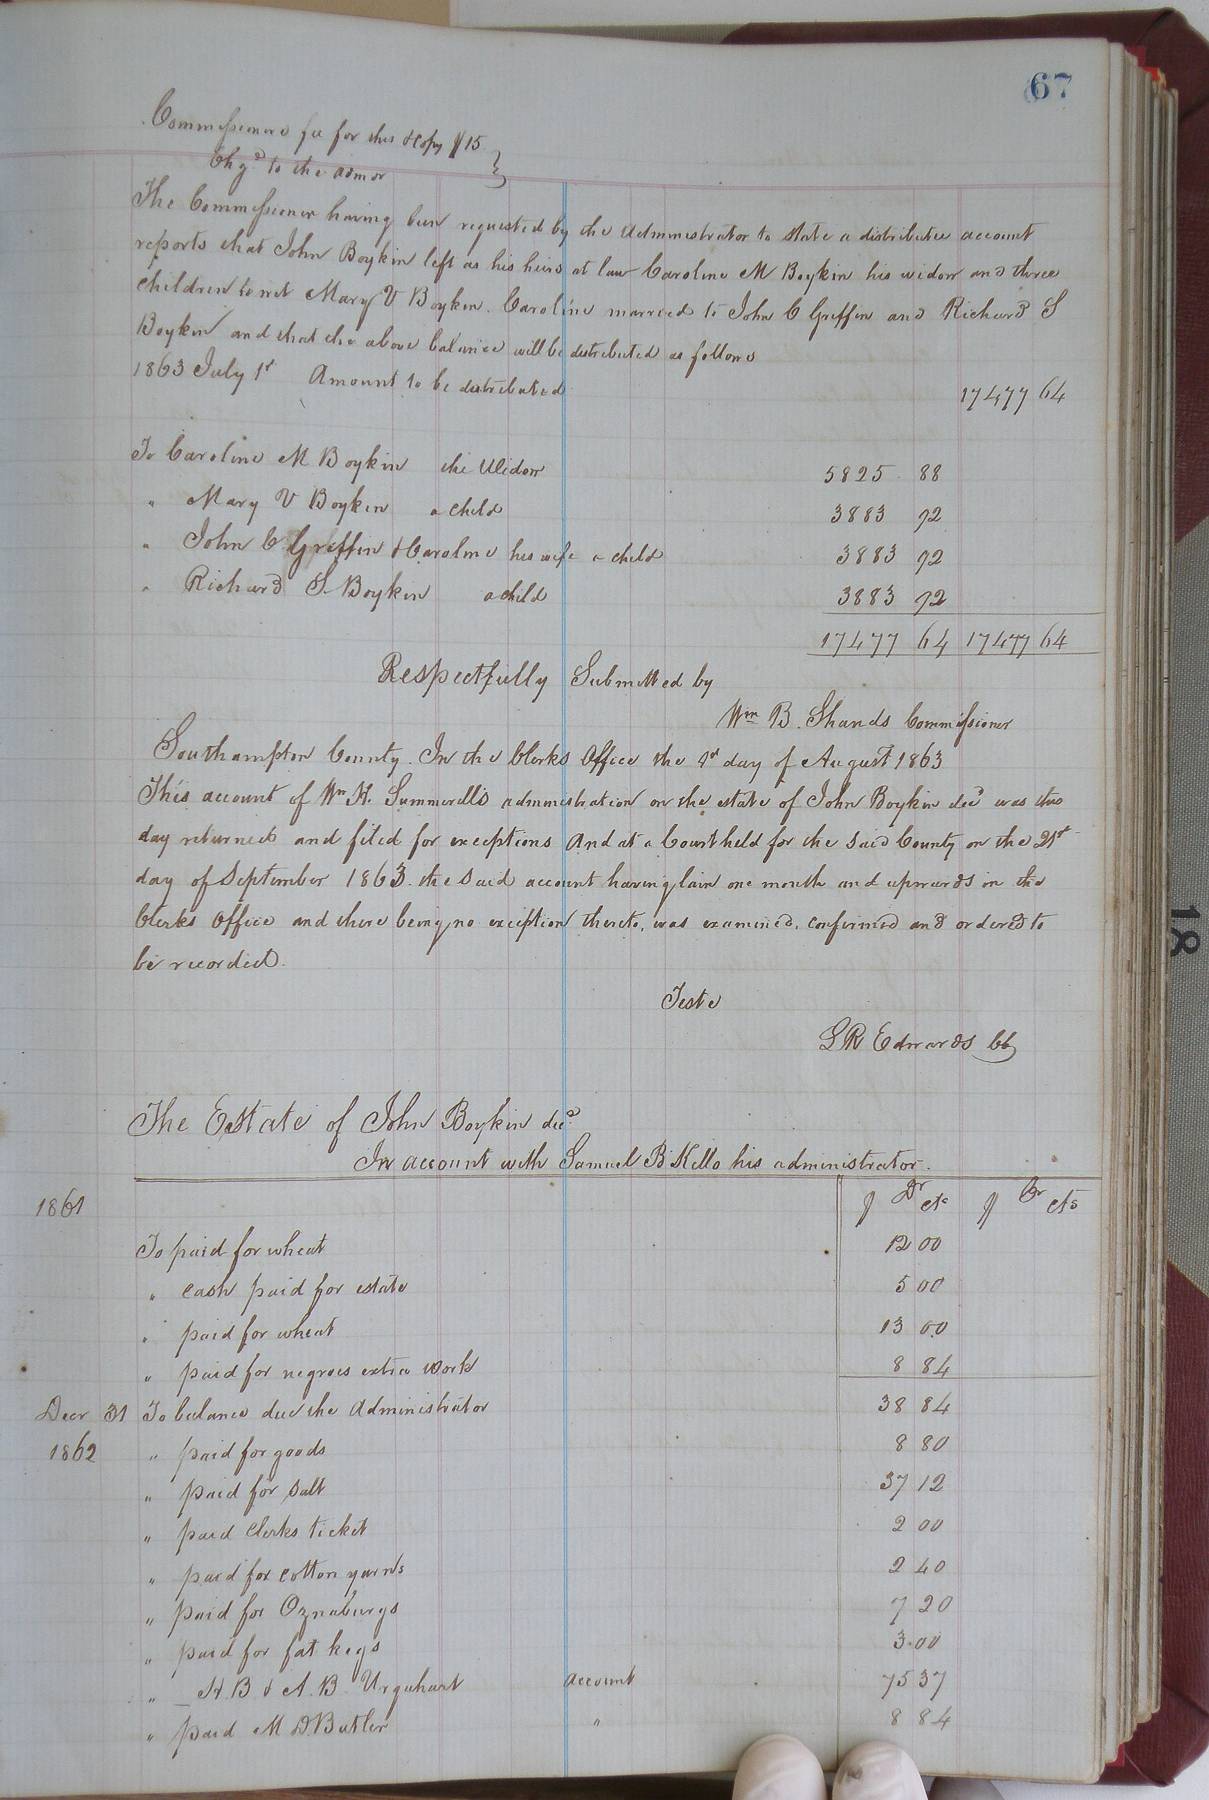 67
Commissioners fee for this & copy $15
Chgd to the admor
The Commissioner having been requested by the Administrator to state a distributive account
reports that John Boykin left as his heirs at law Caroline M Boykin his widow and three
children to wit Mary V Boykin. Caroline married to John C Griffin and Richard S
Boykin and that the above balance will be distributed as follows
1863 July 1st Amount to be distributed 17477 64
To Caroline M Boykin the Widow 5825 88
" Mary V Boykin a child 3883 92
" John C Griffin & Caroline his wife a child 3883 92
" Richard S. Boykin a child 3883 92
17477 64 17477 64
Respectfully Submitted by
Wm B. Shands Commissioner
Southampton County. In the Clerks Office the 1st day of August 1863
This account of Wm H. Summerells administration on the estate of John Boykin decd was this
day returned and filed for exceptions And at a Court held for the said County on the 21st
day of September 1863. the said account having lain one month and upwards in the
Clerks Office and there being no exception thereto, was examined, confirmed and ordered to
be recorded.
Teste
L R Edwards CC
The Estate of John Boykin decd
In account with Samuel B Kello his administrator.
1861 $ Dr cts $ Cr cts
To paid for wheat 12 00
" cash paid for estate 5 00
" paid for wheat 13 00
" paid for negroes extra work 8 84
Decr 31 To balance due the Administrator 38 84
1862 " paid for goods 8 80
" paid for salt 37 12
" paid Clerks ticket 2 00
" paid for cotton yarns 2 40
" paid for Oznaburgs 7 20
" paid for fat kegs 3.00
" A. B & A. B. Urquhart account 75 37
" paid M D. Butler " 8 84
18